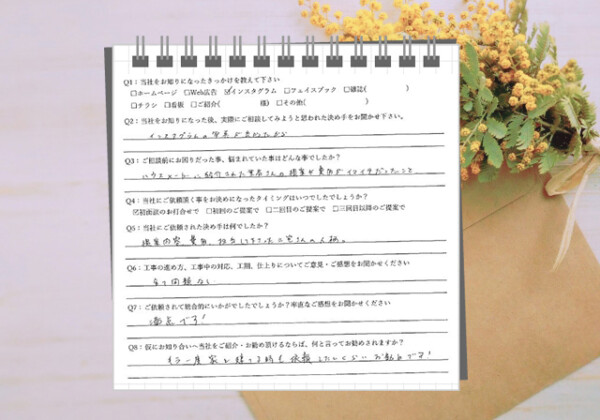 Q1：当社をお知りになったきっかけを教えて下さい
□ホームページ □Web広告 ☑インスタグラム □フェイスブック □雑誌（　　　）
□チラシ □看板 □ご紹介（　　　様） □その他（　　　）
Q2：当社をお知りになった後、実際にご相談してみようと思われた決め手をお聞かせ下さい。
インスタグラムの写真が
Q3：ご相談前にお困りだった事、悩まれていた事はどんな事でしたか？
ハウスメーカーに紹介された業者さんの提案が費用が イマイチだったこと
Q4：当社にご依頼頂く事をお決めになったタイミングはいつでしたでしょうか？
☑初面談のお打合せで □初回のご提案で □二回目のご提案で □三回目以降のご提案で
Q5：当社にご依頼された決め手は何でしたか？
提案内容、費用、担当して さんの人柄。
Q6：工事の進め方、工事中の対応、工期、仕上りについてご意見・ご感想をお聞かせください
全て問題なし
Q7：ご依頼されて総合的にいかがでしたでしょうか？率直なご感想をお聞かせください
満点です！
Q8：仮にお知り合いへ当社をご紹介・お勧め頂けるならば、何と言ってお勧めされますか？
もう一度家を建てる時も依頼したいくらいお勧めです！